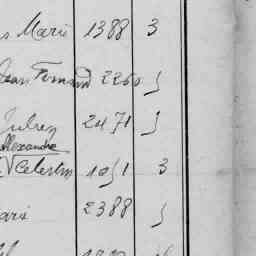 Marie 1388 3
Jean Fernand 2260 5
Jules 2471 5
Alexandre
Celestin 1051 3
2388 5